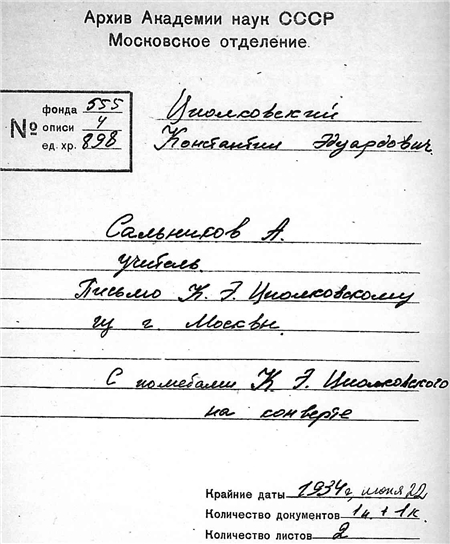 Архив Академии наук СССР
Московское отделение.
№
фонда 555
описи 4
ед. хр. 898
Циолковский
Константин Эдуардович.
Сальников А.
учитель.
Письмо К. Э. Циолковскому
из г. Москвы.
С пометами К. Э. Циолковского
на конверте
Крайние даты 1934 г, июня 22
Количество документов 1п. + 1к.
Количество листов 2